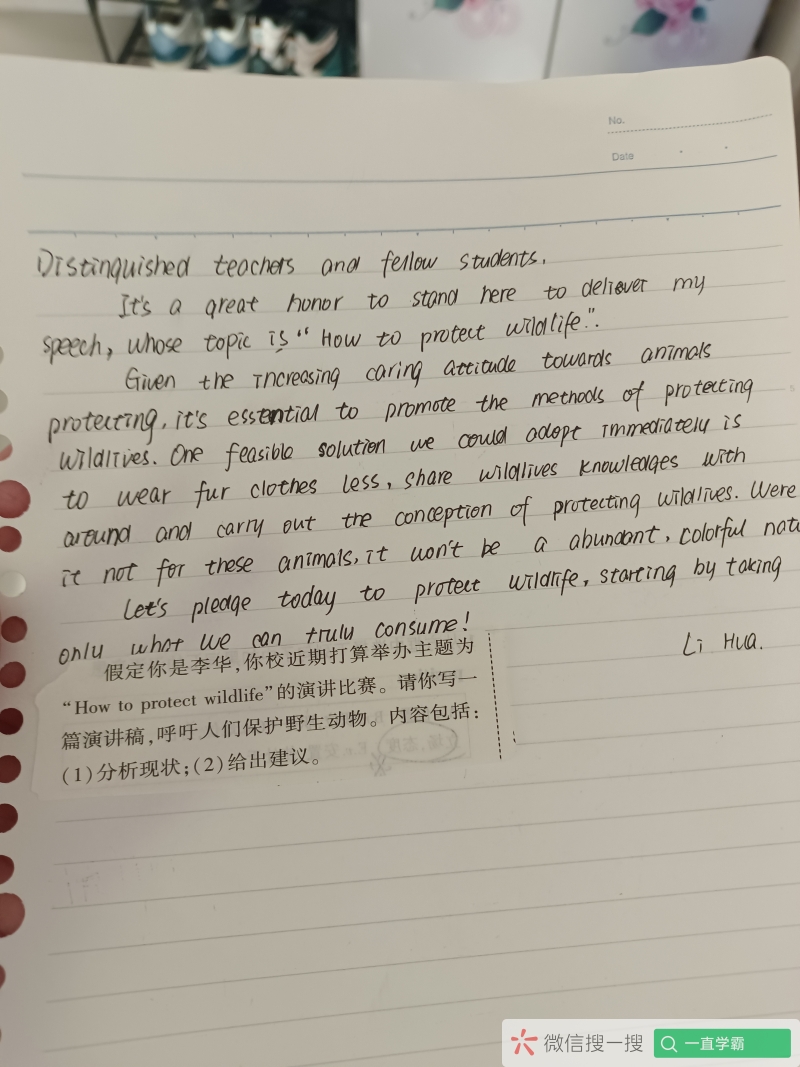 No.
Date
Distinguished teachers and fellow students.
It's a great honor to stand here to deliever my
speech, whose topic is "How to protect wildlife".
Given the increasing caring attitude towards animals
protecting, it's essential to promote the methods of protecting
wildlives. One feasible solution we could adopt immediately is
to wear fur clothes less, share wildlives knowledges with
around and carry out the conception of protecting wildlives. Were
it not for these animals, it won't be a abundant, colorful natu
Let's pledge today to protect wildlife, starting by taking
only what we can truly consume!
Li Hua.
假定你是李华,你校近期打算举办主题为
“How to protect wildlife”的演讲比赛。请你写一
篇演讲稿,呼吁人们保护野生动物。内容包括:
(1)分析现状;(2)给出建议。
微信搜一搜
一直学霸